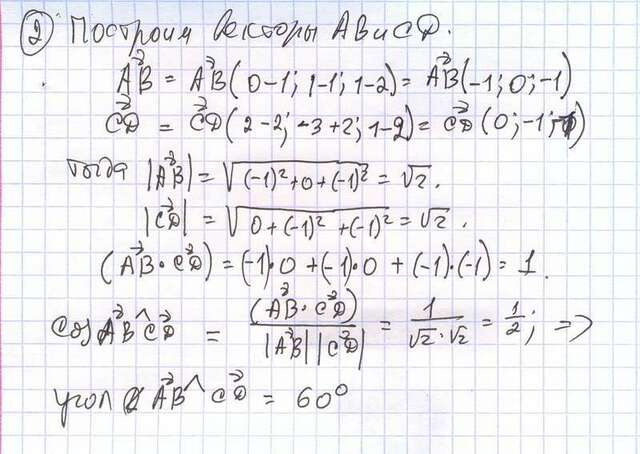 ② Построим векторы AB и CD.
AB⃗ = AB⃗ (0-1; 1-1; 1-2) = AB⃗ (-1; 0; -1)
CD⃗ = CD⃗ (2-2; -3+2; 1-2) = CD⃗ (0; -1; -1)
тогда |AB⃗| = √((-1)²+0+(-1)²) = √2.
|CD⃗| = √(0+(-1)²+(-1)²) = √2.
(AB⃗ · CD⃗) = (-1)·0 + (-1)·0 + (-1)·(-1) = 1.
cos AB⃗ ^ CD⃗ = (AB⃗ · CD⃗) / |AB⃗| |CD⃗| = 1 / √2·√2 = 1/2; =>
угол AB⃗ ^ CD⃗ = 60°